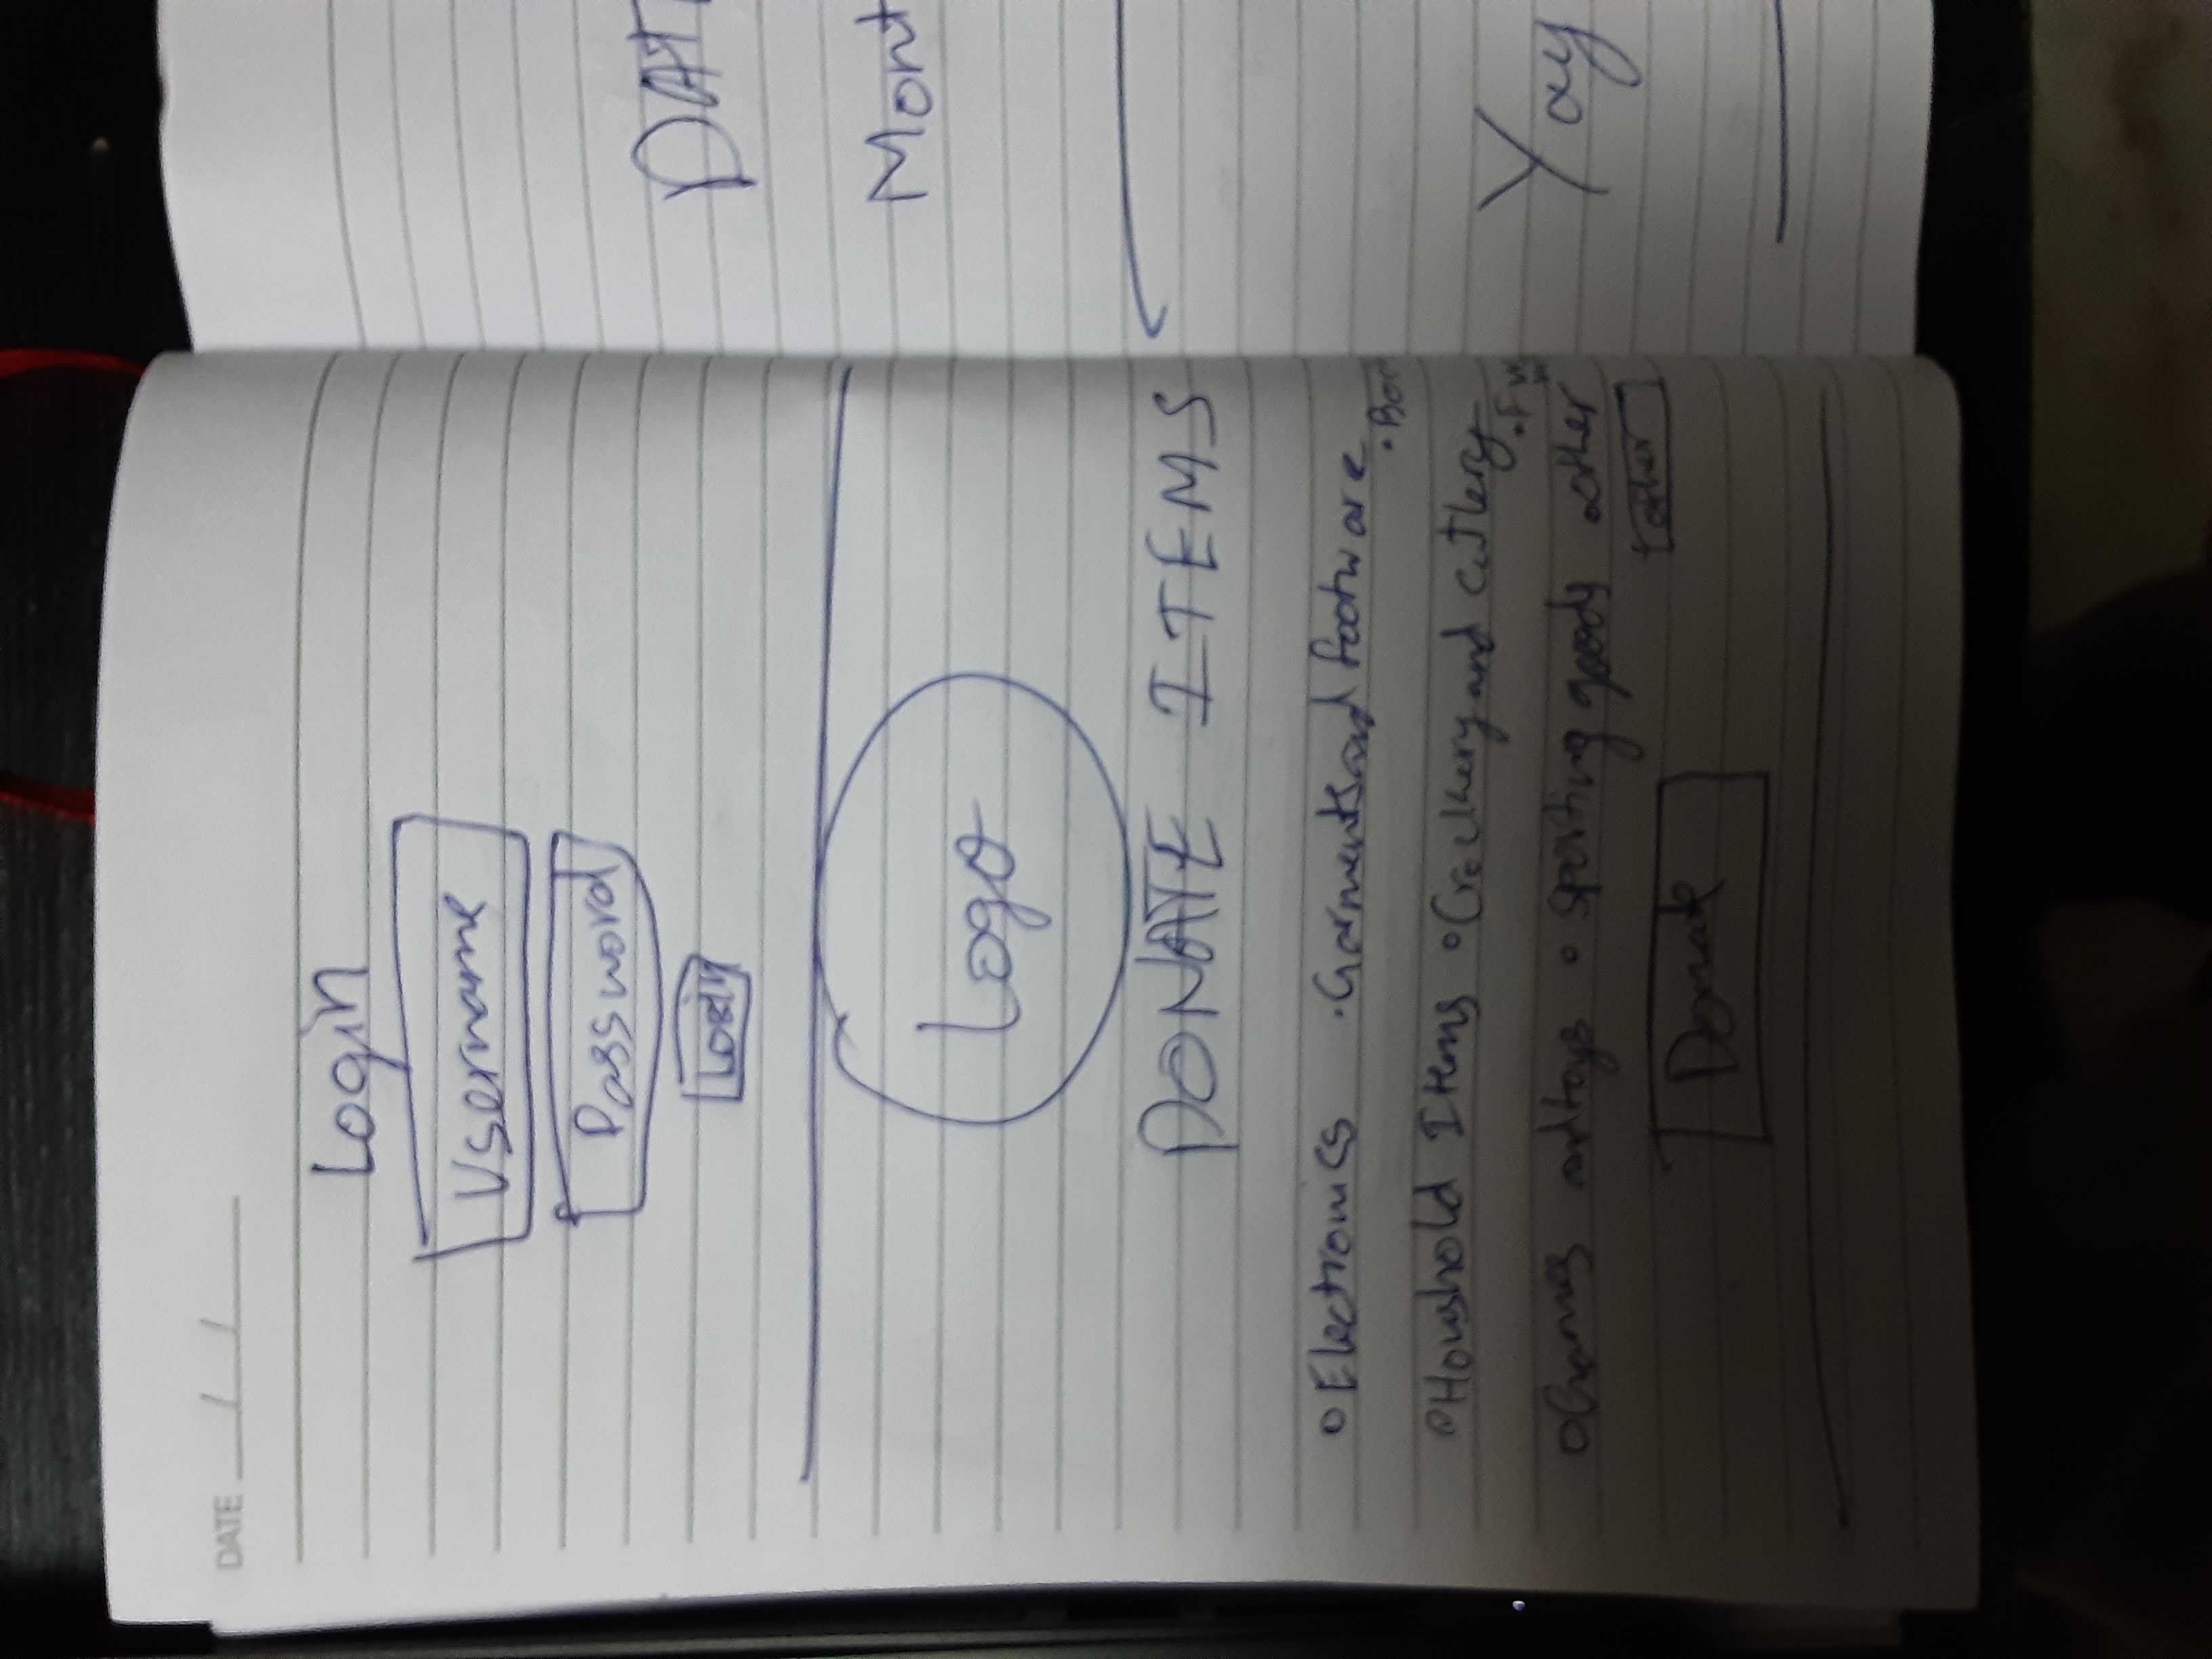 DATE / /
Login
Username
Password
Login
Logo
DONATE ITEMS
Electronics · Garments and footware
· Boo
Houshold Items Crockery and cutlery
Games and toys sporting goods other
other
Donate
DAT
Mont
Yay